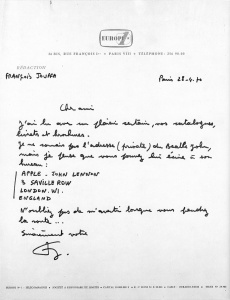 EUROPE 1
26 BIS, RUE FRANÇOIS 1er - PARIS VIIIe - TÉLÉPHONE :
RÉDACTION
FRANÇOIS JOUFFA
Paris 28.4.70
Cher ami
J'ai lu avec un plaisir certain, vos catalogues,
livrets et brochures.
Je ne connais pas l'adresse (privée) du Beatle John,
mais je pense que vous pouvez lui écrire à son
bureau :
APPLE - JOHN LENNON
3 SAVILLE ROW
LONDON. W1.
ENGLAND
N'oubliez pas de m'avertir lorsque vous
la route ...
Sincèrement votre